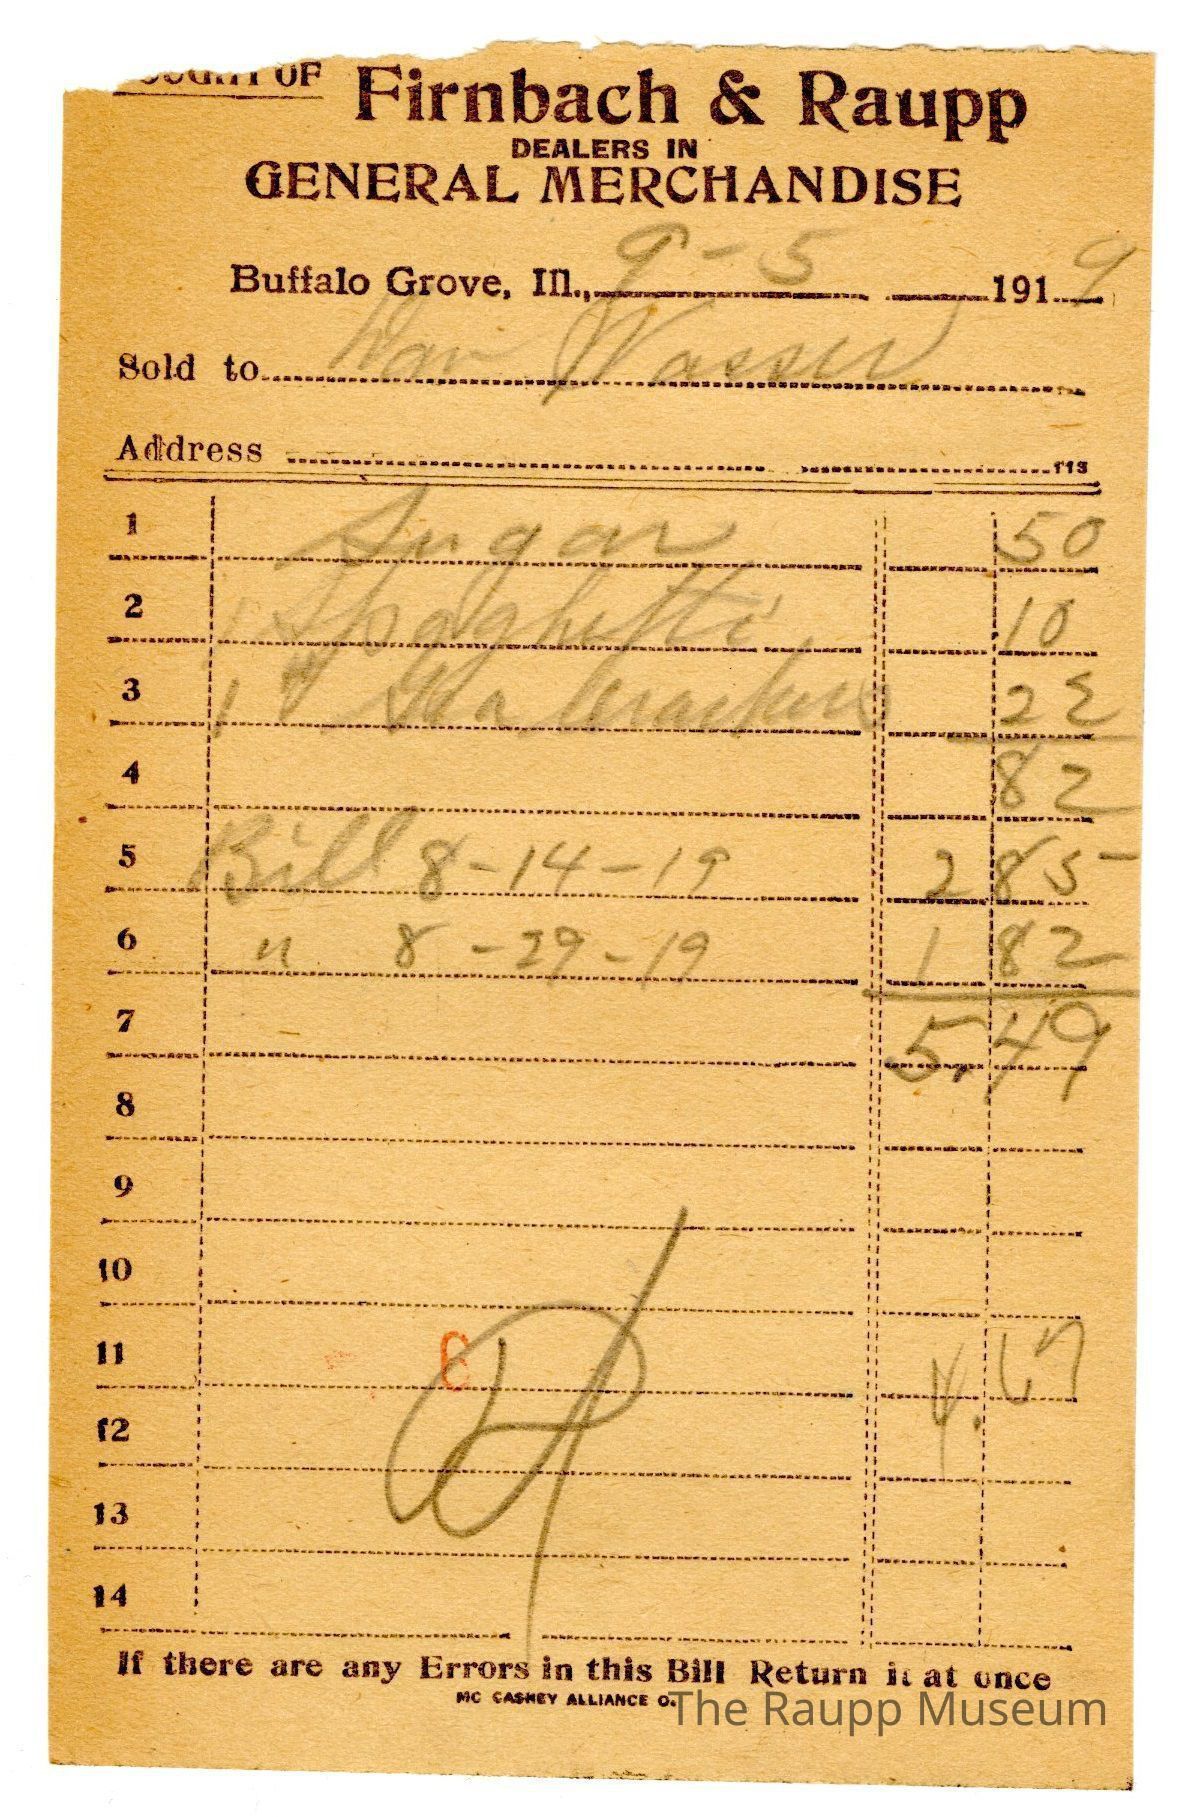 OF
Firnbach & Raupp
DEALERS IN
GENERAL MERCHANDISE
Buffalo Grove, Ill., 9-5 1919
Sold to Wasser
Address 113
1 Sugar 50
2 1 Spaghetti 10
3 1 # Crackers 22
4 82
5 Bill 8-14-19 2 85
6 " 8-29-19 1 82
7 5.49
8
9
10
11 6
12
13
14
If there are any Errors in this Bill Return it at once
MC CASKEY ALLIANCE O.
The Raupp Museum